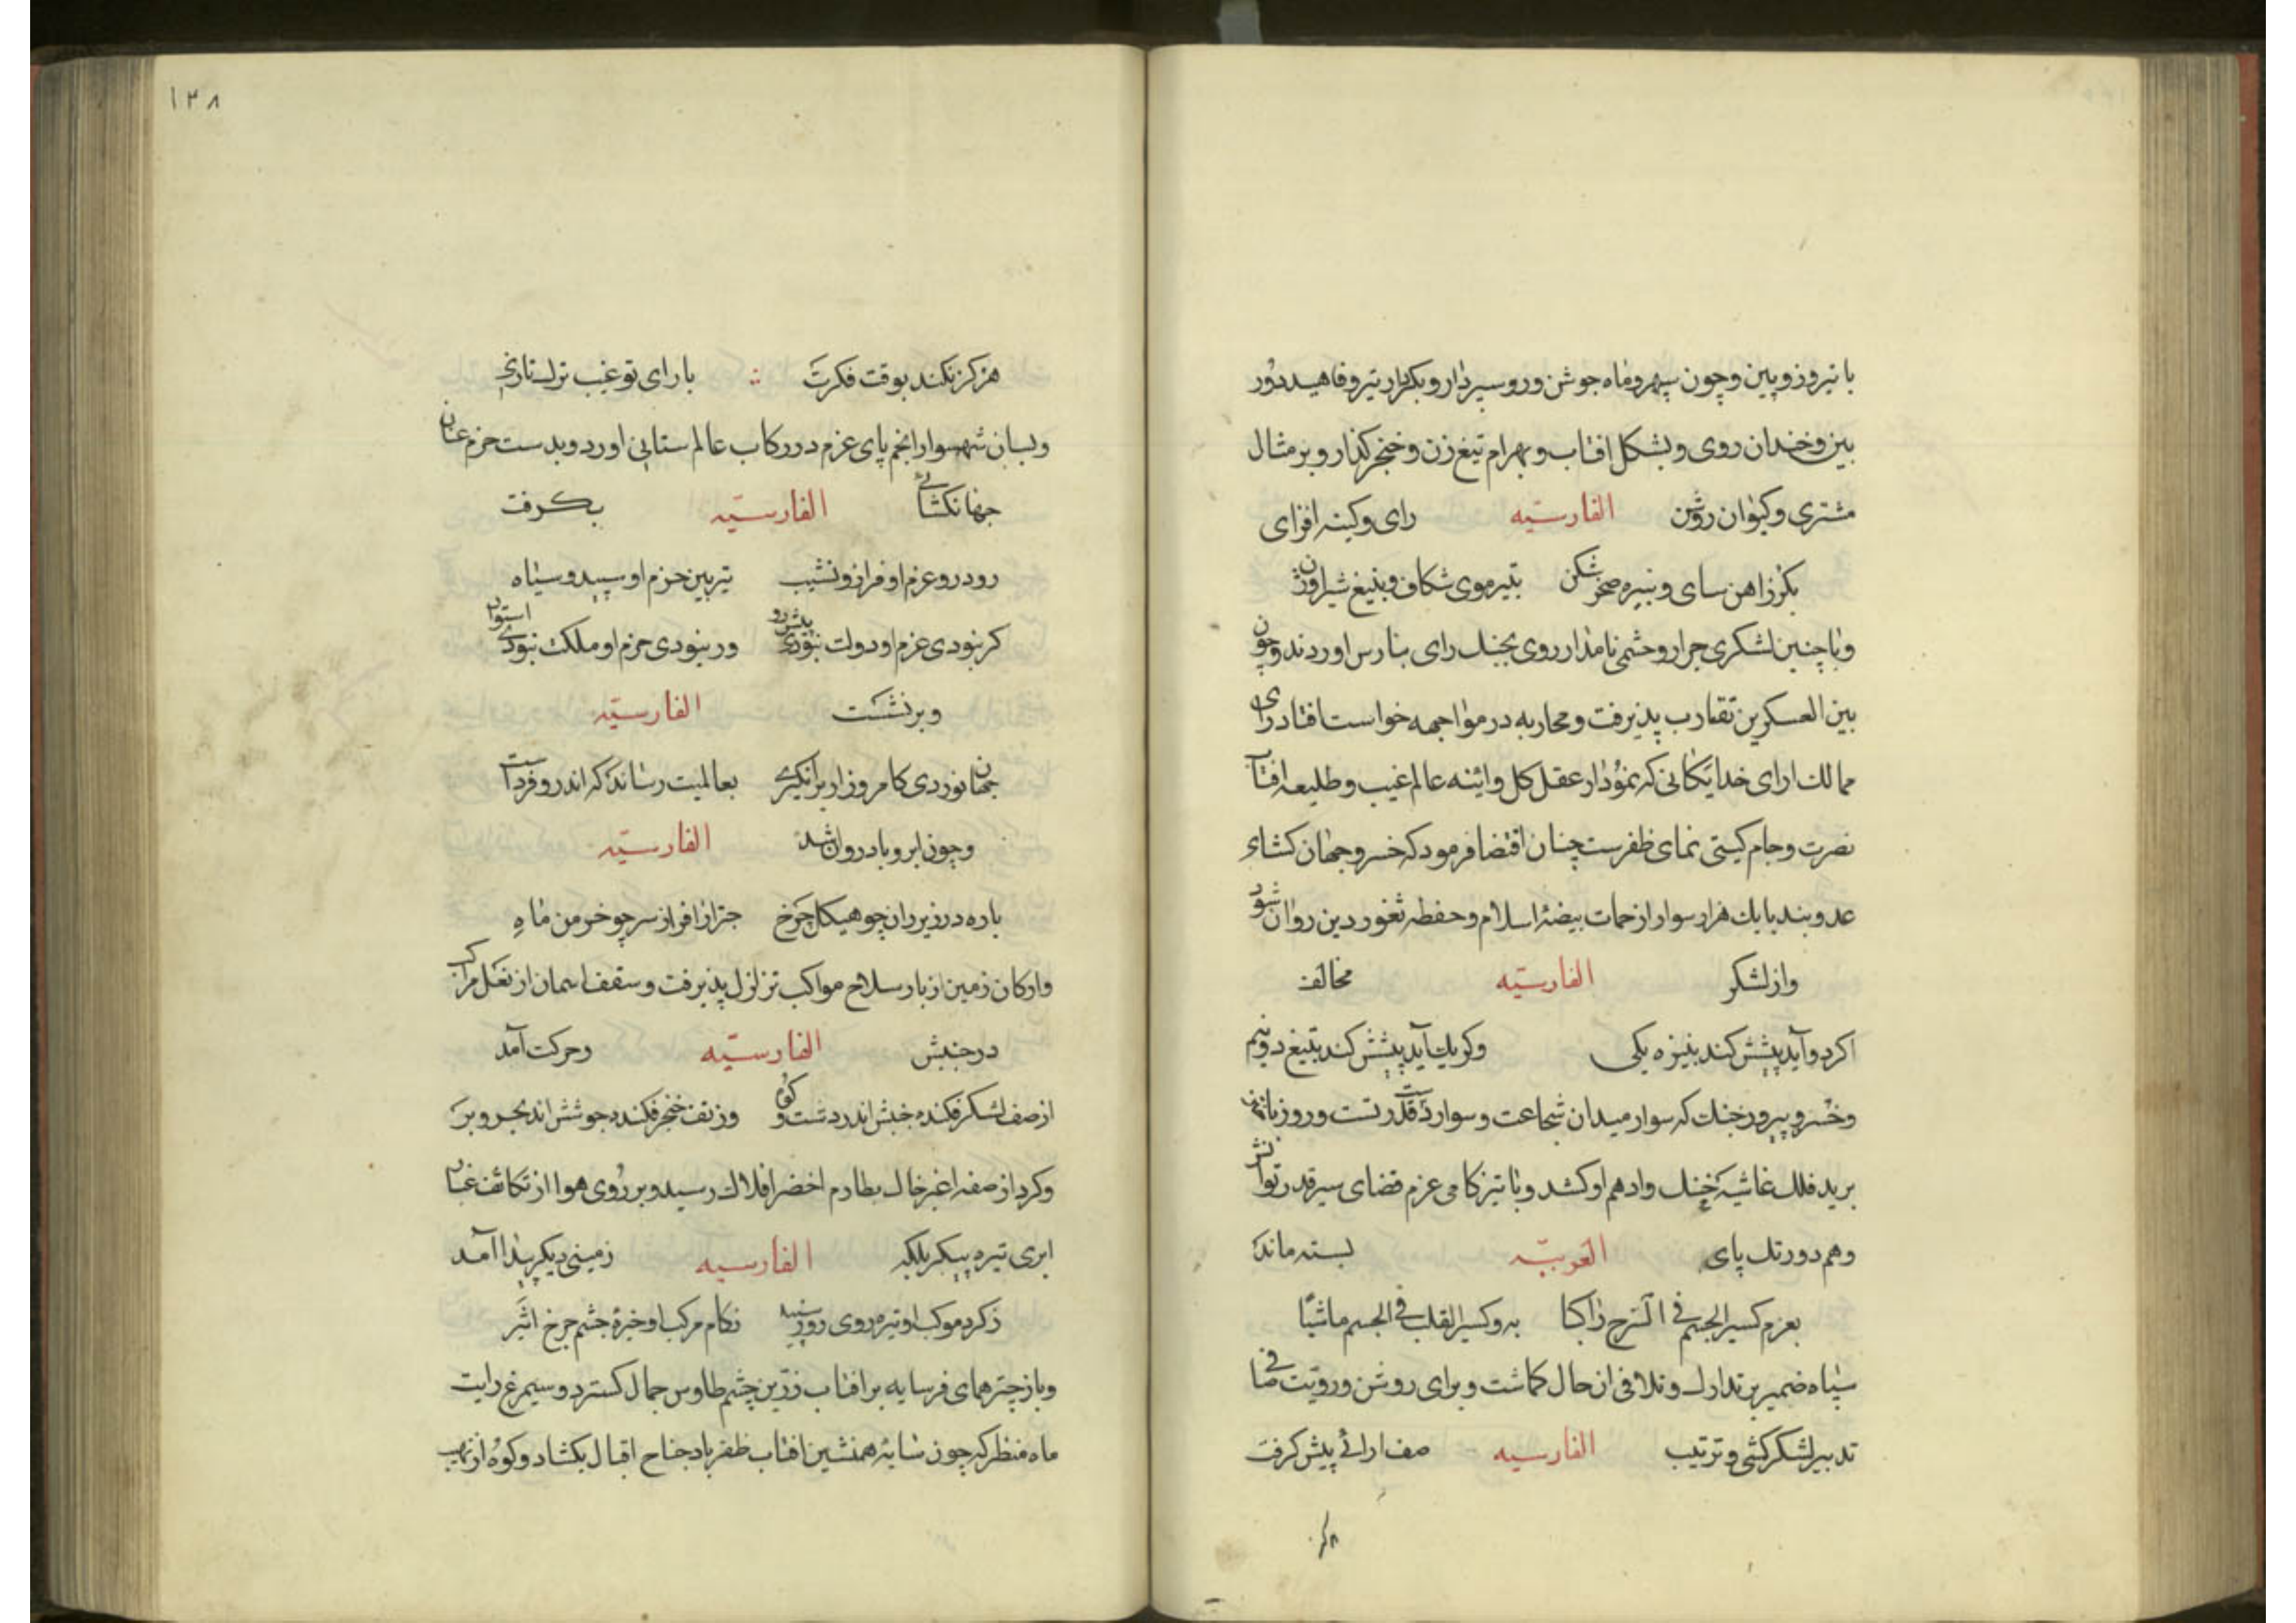 با تیر وزوبین و چون سپهر و ماه جوشن ور و سپردار و بکردار تیر و ناهید دور
بین و خندان روی و بشکل افتاب و بهرام تیغ زن و خنجر کذار و بر مثال
مشتری و کیوان روشن الفارسیّه رای و کینه افزای
بکرز اهن سای و بنیزه صخر شکن بتیر موی شکاف و بتیغ شیر اوژن
و با چنین لشکری جرار و حشمی نامدار روی بجنک رای بنارس اوردند و چون
بین العسکرین تقارب پذیرفت و محاربه در مواجهه خواست افتاد رای
ممالک ارای خدایکانی که نمودار عقل کل و اینه عالم غیب و طلیعه افتاب
نصرت و جام کیتی نمای ظفرست چنان اقتضا فرمود که خسرو جهان کشاء
عدو بند با یک هزار سوار از حمات بیضهٔ اسلام و حفطه ثغور دین روان شود
و از لشکر الفارسیّه مخالف
اکر دو آید پیشش کند بنیزه یکی وکر یک آید پیشش کند بتیغ دو نیم
و خسرو پیروز جنک که سوار میدان شجاعت و سوار دست قدرتست و روز
برید فلک غاشیه خنک و ادهم او کشد و با تیز کامی عزم قضای سیر قدر توانش
وهم دور تک پای العربیّه بسته ماند
بعزم کسیر الجسم فی السرج راکبا به و کسیر القلب فی الجسم ماشیًا
سپاه ضمیر بر تدارک و تلافی ان حال کماشت و برای روشن و رویّت صافی
تدبیر لشکر کشی و ترتیب الفارسیه صف ارائی پیش کرفت
۱۳۸
هرکز نکند بوقت فکرت با رای تو غیب ترک تازی
و بسان شهسوار انجم پای عزم در رکاب عالم ستانی اورد و بدست حزم عنان
جهانکشائی الفارسیّه بکرفت
رود رو عزم او فراز و نشیب تیزبین حزم او سپید و سیاه
کر نبودی عزم او دولت نبودی پیش رو ور نبودی حزم او ملکت نبودی استوار
و برنشست الفارسیّه
جهان نوردی کامروز ار برانکیزی بعالمیت رساند که اندرو فرداست
و چون ابر و باد روان شد الفارسیّه
باره در زیر ران چو هیکل چرخ چتر از افراز سر چو خرمن ماهِ
و ارکان زمین از بار سلاح مواکب تزلزل پذیرفت و سقف اسمان از نعل مراکب
در جنبش الفارسیّه و حرکت آمد
از صف لشکر فکنده جنبش اندر دشت و کوه وز تف خنجر فکنده جوشش اندر بحر و بر
و کرد از صفه اغبر خاک بطارم اخضر افلاک رسید و بر روی هوا از تکاثف غبار
ابری تیره پیکر بلکه الفارسیه زمینی دیکر پیدا آمد
ز کرد موکب او تیره روی روز سپید ز کام مرکب او خیره چشم چرخ اثیر
و باز چتر همای فر سایه بر افتاب زرّین چشم طاوس جمال کسترد و سیمرغ رایت
ماه منظر که چون سایه همنشین افتاب ظفر باد جناح اقبال بکشاد و کوه از نهیب